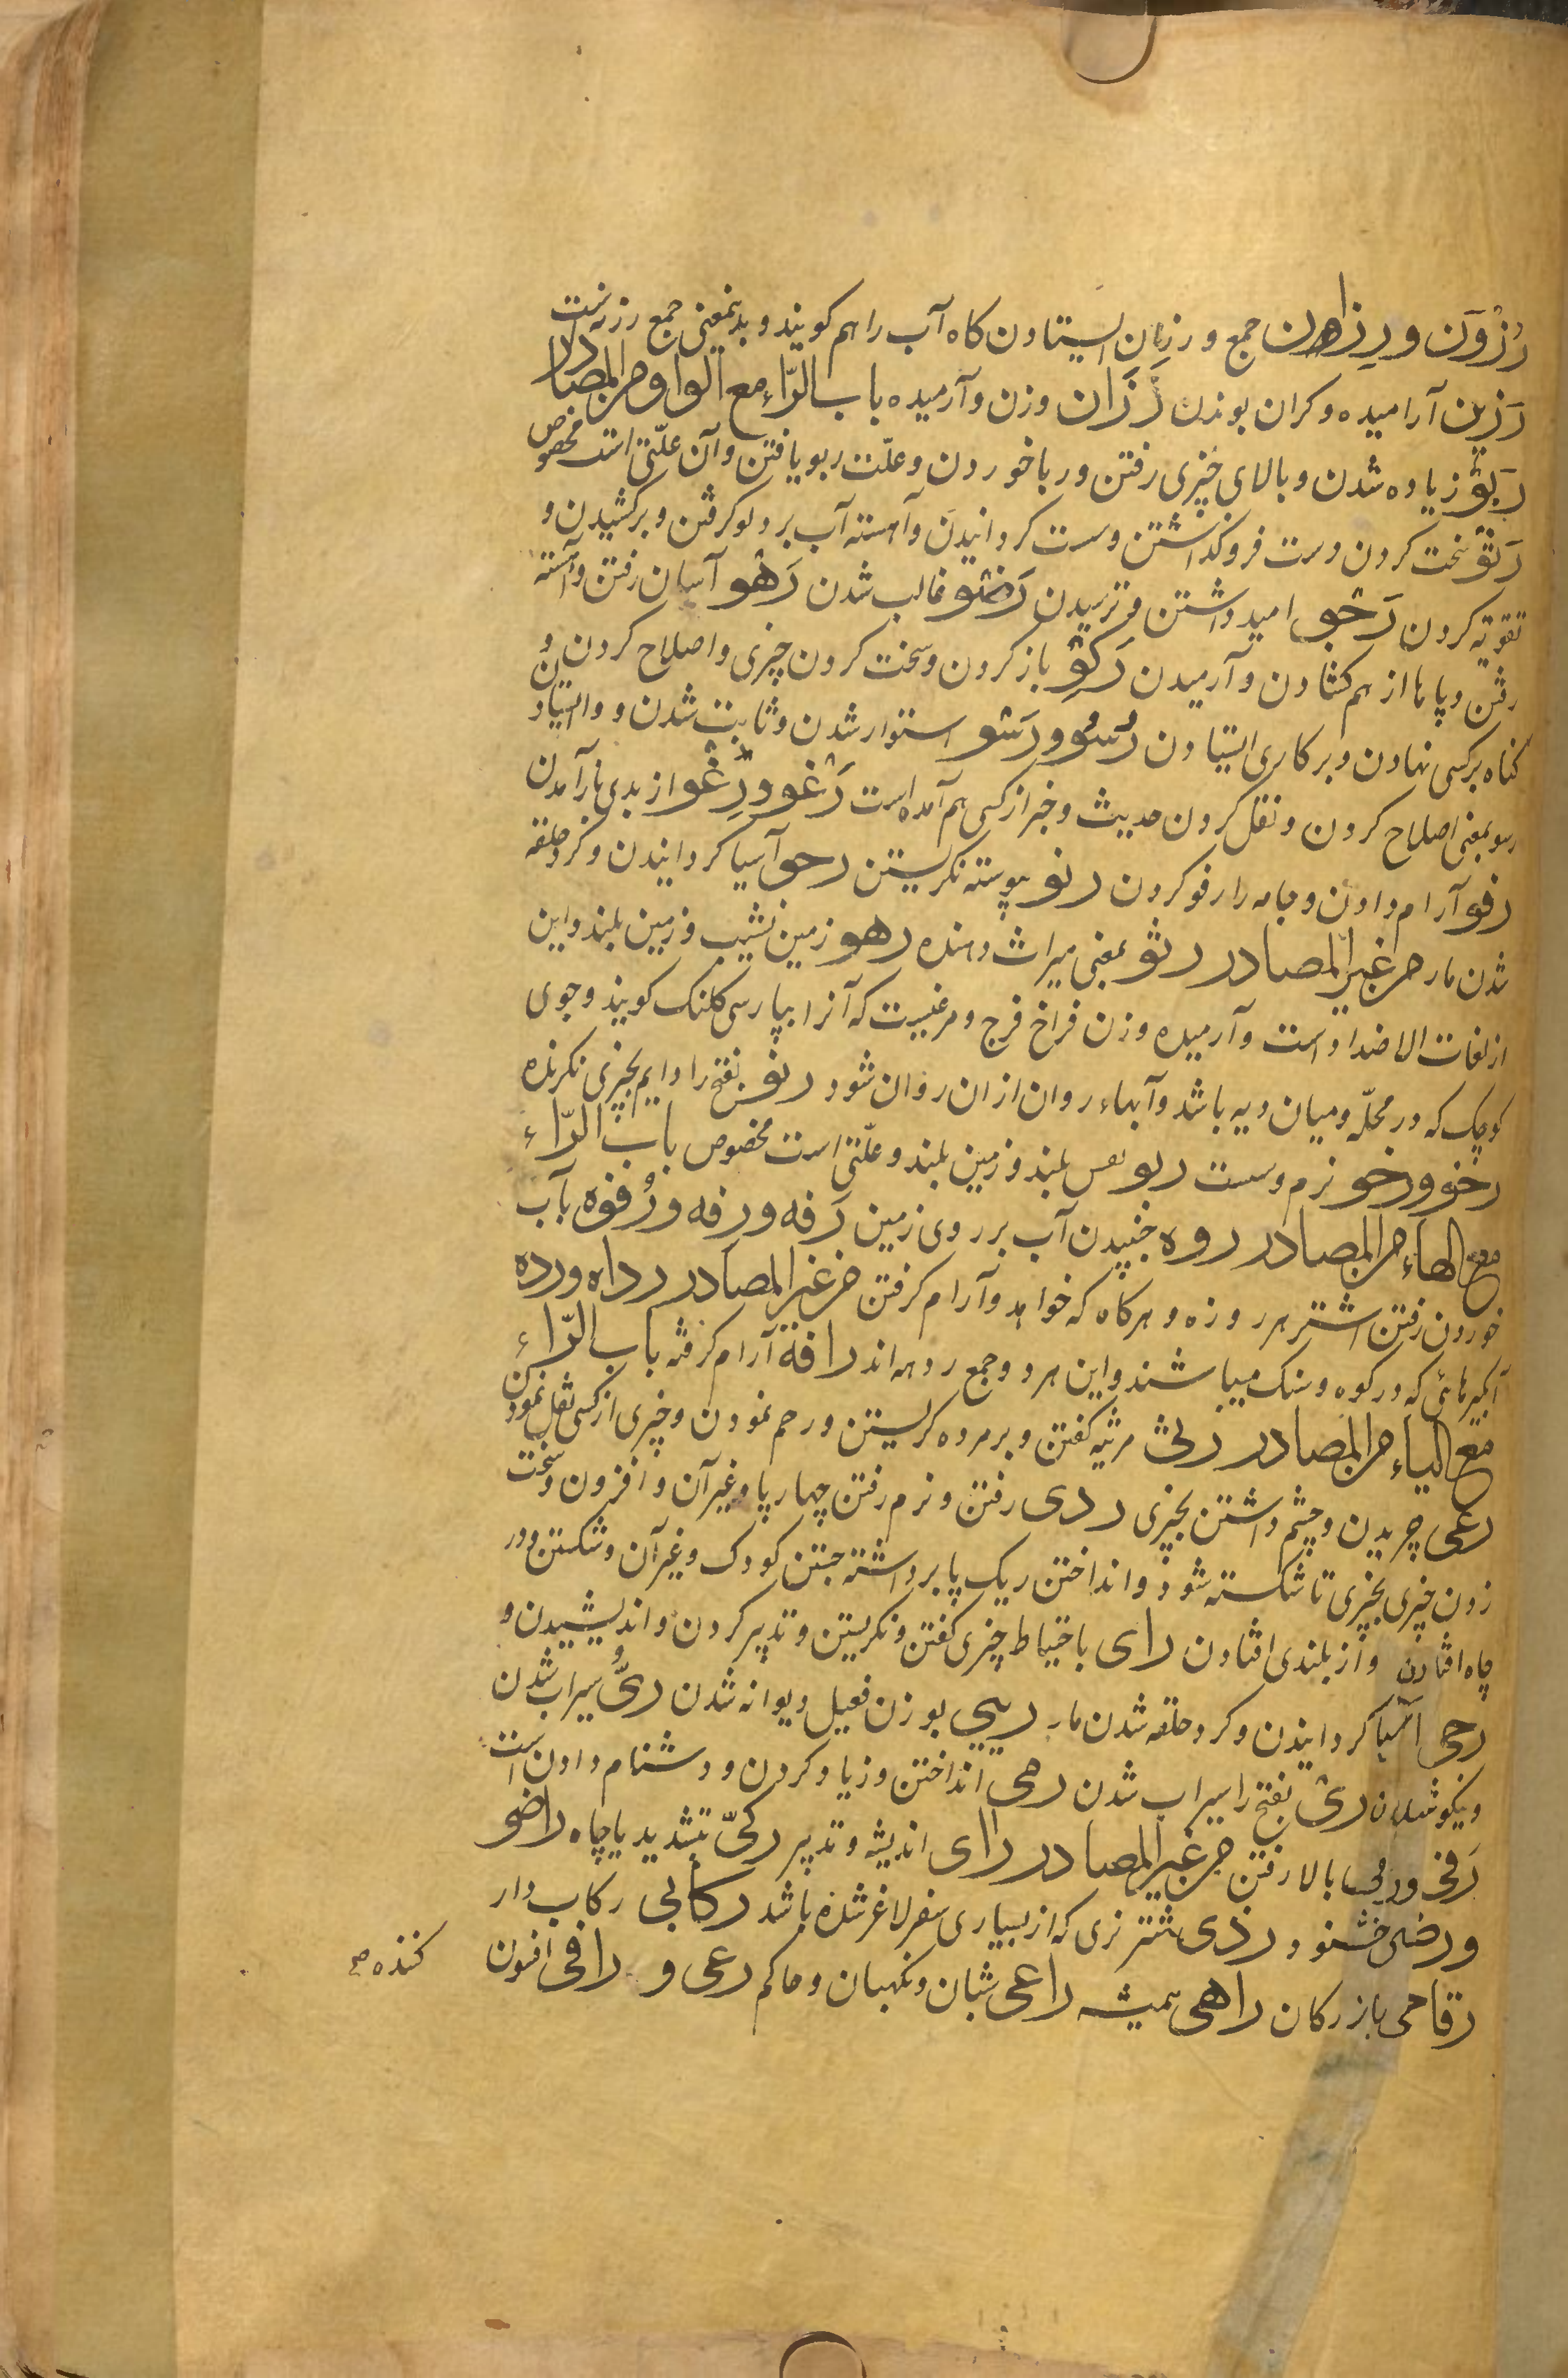 رُزُوَن و رِزاهن جمع و رزن ایستادن کاه آب را هم کویند و بدینمعنی جمع رزنست
رَزین آرامیده و کران بوزن رَزَان وزن و آرمیده باب الرّاء مع الواو من المصادر
رَبوٌ زیاده شدن و بالای چیزی رفتن و ربا خوردن و علّت ربو یافتن و آن علّتی است مخصوص
رَتوٌ سخت کردن و سست فروکذاشتن و سست کردانیدن و آهسته آب بدلو کرفتن و برکشیدن و
تقویة کردن رَجو امید داشتن و ترسیدن غالب شدن رَهو آسان رفتن و آهسته
رفتن و پاها از هم کشادن و آرمیدن رَکوٌ باز کردن و سخت کردن چیزی و اصلاح کردن و
کناه بر کسی نهادن و بر کاری ایستادن رُسُو و رَسو استوار شدن و ثابت شدن و وایستادن
رسو بمعنی اصلاح کردن و نقل کردن حدیث و خبر از کسی هم آمده است رَغو و رِغو از بدی باز آمدن
رفو آرام دادن و جامه را رفو کردن رنو پیوسته نکریستن رحو آسیا کردانیدن و کرد حلقه
شدن مار من غیر المصادر رثو بمعنی میراث دهنده رهو زمین نشیب و زمین بلند و این
از لغات الاضداد است و آرمیده و زن فراخ فرج و مرغیست که آنرا بپارسی کلنک کویند و جوی
کوچک که در محلّه و میان دیه باشد و آبهاء روان از ان روان شود رنو بفتح را دایم بچیزی نکرنده
رخو و رخو نرم و سست ربو نفس بلند و زمین بلند و علّتی است مخصوص باب الرّاء
مع الهاء من المصادر روه جنبیدن آب بر روی زمین رَفه و رِفه و رُفوه بآب
خوردن رفتن اشتر هر روزه و هرکاه که خواهد و آرام کرفتن من غیر المصادر رداه و رده
آبکیرهائی که در کوه و سنک میباشند و این هر دو جمع ردهه اند رافه آرام کرفته باب الرّاء
مع الیاء من المصادر رثی مرثیه کفتن و بر مرده کریستن و رحم نمودن و چیزی از کسی نقل نمودن
رعی چریدن و چشم داشتن بچیزی ردی رفتن و نرم رفتن چهارپا و غیر آن و افزون و سخت
زدن چیزی بچیزی تا شکسته شود و انداختن و یک پا برداشته جستن کودک و غیر آن و شکستن و در
چاه افتادن و از بلندی افتادن رای باحتیاط چیزی کفتن و نکریستن و تدبیر کردن و اندیشیدن و
رحی آسیا کردانیدن و کرد حلقه شدن مار ریی بوزن فعیل دیوانه شدن ریّ سیراب شدن
و نیکو شدن ری بفتح را سیراب شدن رمی انداختن و زیاد کردن و دشنام دادن است
رَقی و رقی بالا رفتن من غیر المصادر رای اندیشه و تدبیر رکیّ بتشدید یا چاه راضو
و رضی خشنود رذی شتر نری که از بسیاری سفر لاغر شده باشد رکابی رکاب دار
رقاحی بازرکان راهی همیشه راعی شبان و نکهبان و حاکم رعی و راقی افسون
کننده